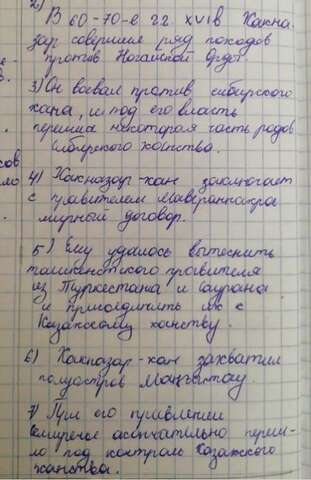 2)
В 60-70-е гг. XVIв Хакна-
зар совершил ряд походов
против Ногайской Орды.
3) Он воевал против сибирского
хана, и под его власть
перешла некоторая часть родов
Сибирского ханства.
4) Хакназар-хан заключает
с правителем Мавераннахра
мирный договор.
5) Ему удалось вытеснить
ташкентского правителя
из Туркестана и Саурана
и присоединить их с
Казахскому ханству.
6) Хакназар-хан захватил
полуостров Маңғытау.
7) При его правлении
Семиречье окончательно переш-
ло под контроль Казахского
ханства.